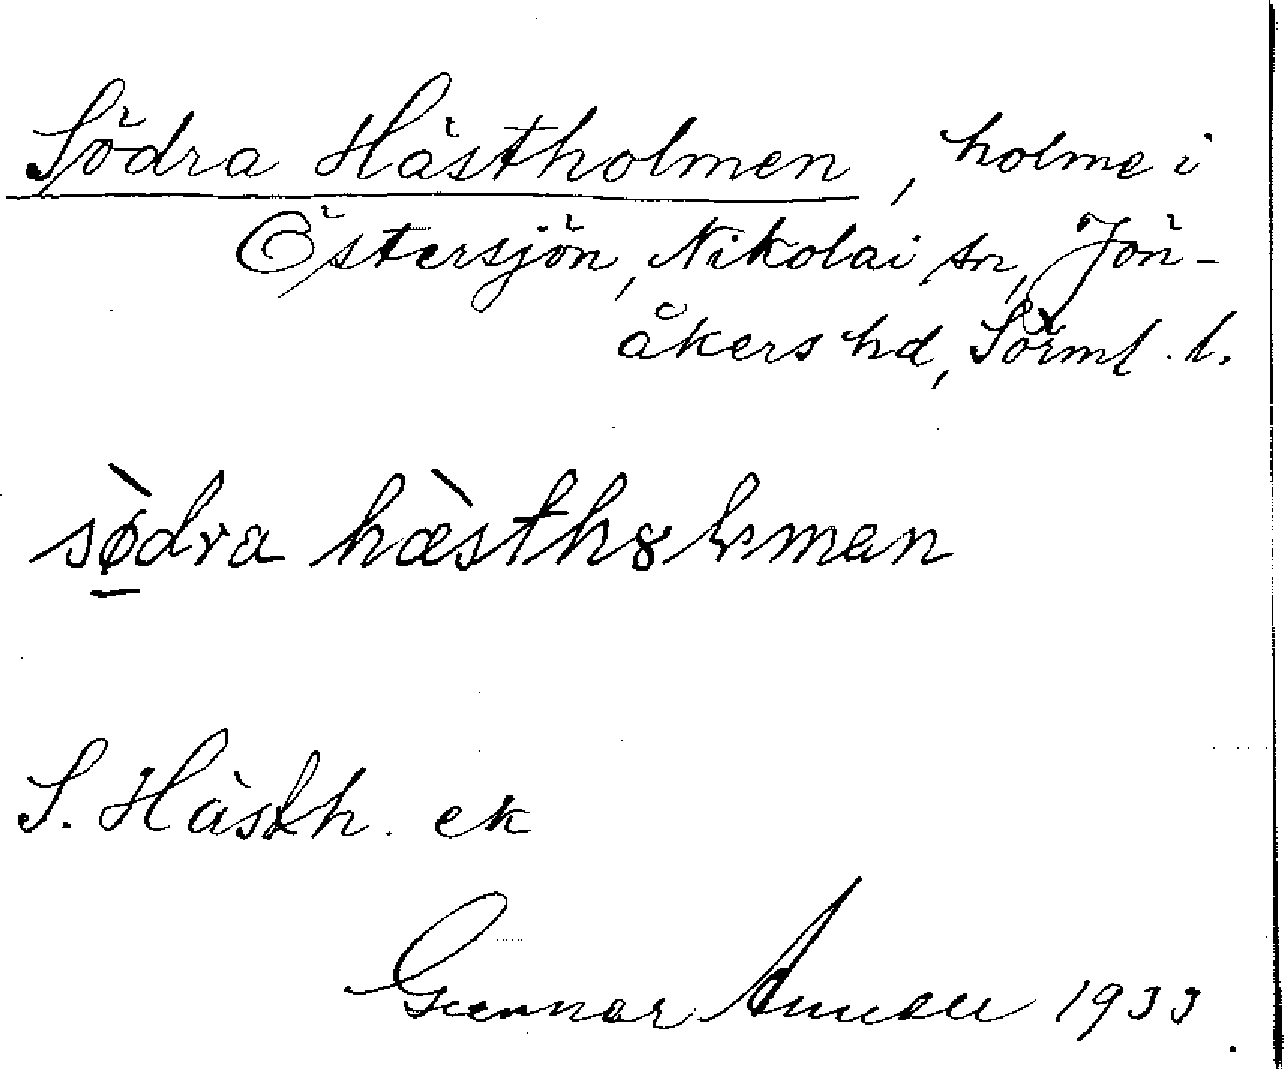 Södra Hästholmen, holme i
Östersjön, Nikolai sn, Jön-
åkers hd, Sörml. l.
sø̠̀dra hæ̀sth8lman
S. Hästh. ek
Gunnar 1933